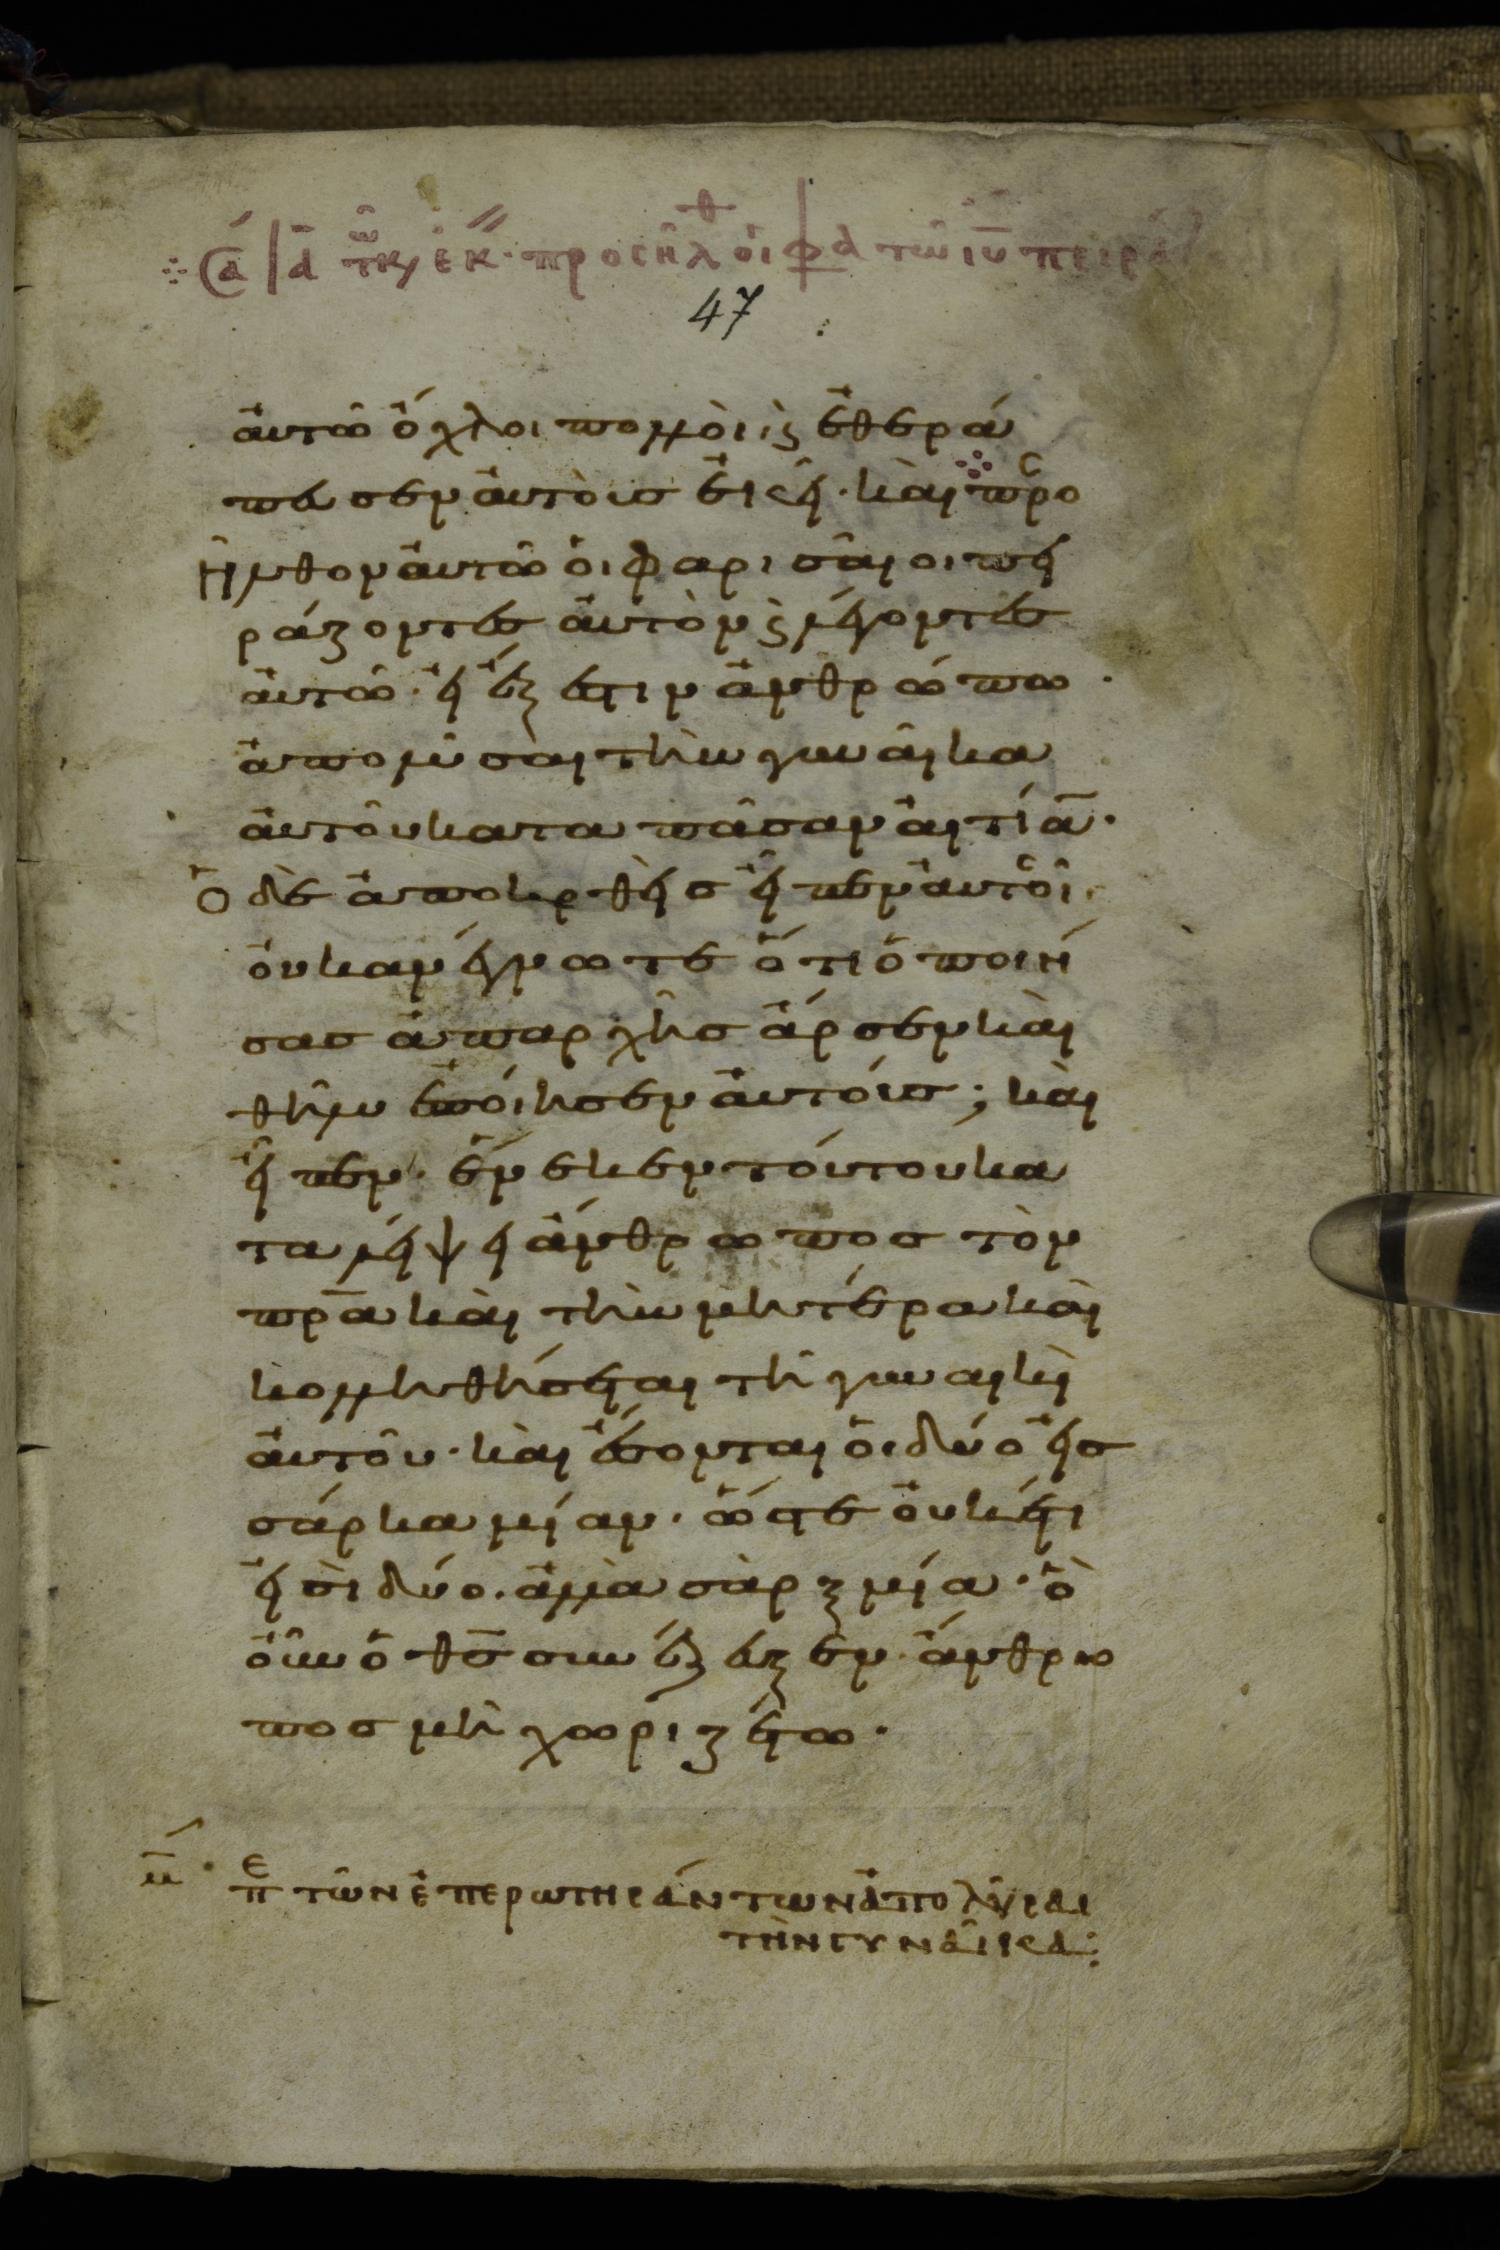 47
αὐτῶ ὄχλοι πολλοὶ, ϗ ἐθερά
πευσεν αὐτοὺς ἐκεῖ. καὶ προσ
ῆλθον αὐτῶ οἱ φαρισαῖοι πει
ράζοντες αὐτὸν ϗ λέγοντες
αὐτῶ. εἰ ἔξεστιν ἀνθρώπω
ἀπολῦσαι τὴν γυναῖκα
αὐτοῦ κατα πᾶσαν αἰτίαν.
Ὁ δὲ ἀποκρθεὶς εἶπεν αὐτοῖς.
οὐκ ανέγνωτε ὅτι ὁ ποιή
σας ἀπαρχῆς ἄρσεν καὶ
θῆλυ ἐποίησεν αὐτούς; καὶ
εἶπεν. ἕνεκεν τούτου κα
ταλείψει ἄνθρωπος τὸν
πρ̅α καὶ τὴν μητέρα καὶ
κολληθήσεται τῆ γυναικὶ
αὐτοῦ. καὶ ἔσονται οἱ δύο εἰς
σάρκα μίαν. ὥστε οὐκέτι
εἰσὶ δύο. ἀλλὰ σὰρξ μία. ὃ
οὖν ὁ θς̅ συνέζευξεν. ἄνθρω
πος μὴ χωριζέτω.
μ̅ · πε τῶν ἐπερωτησάντων ἀπολῦσαι
τὴν γυναῖκα: